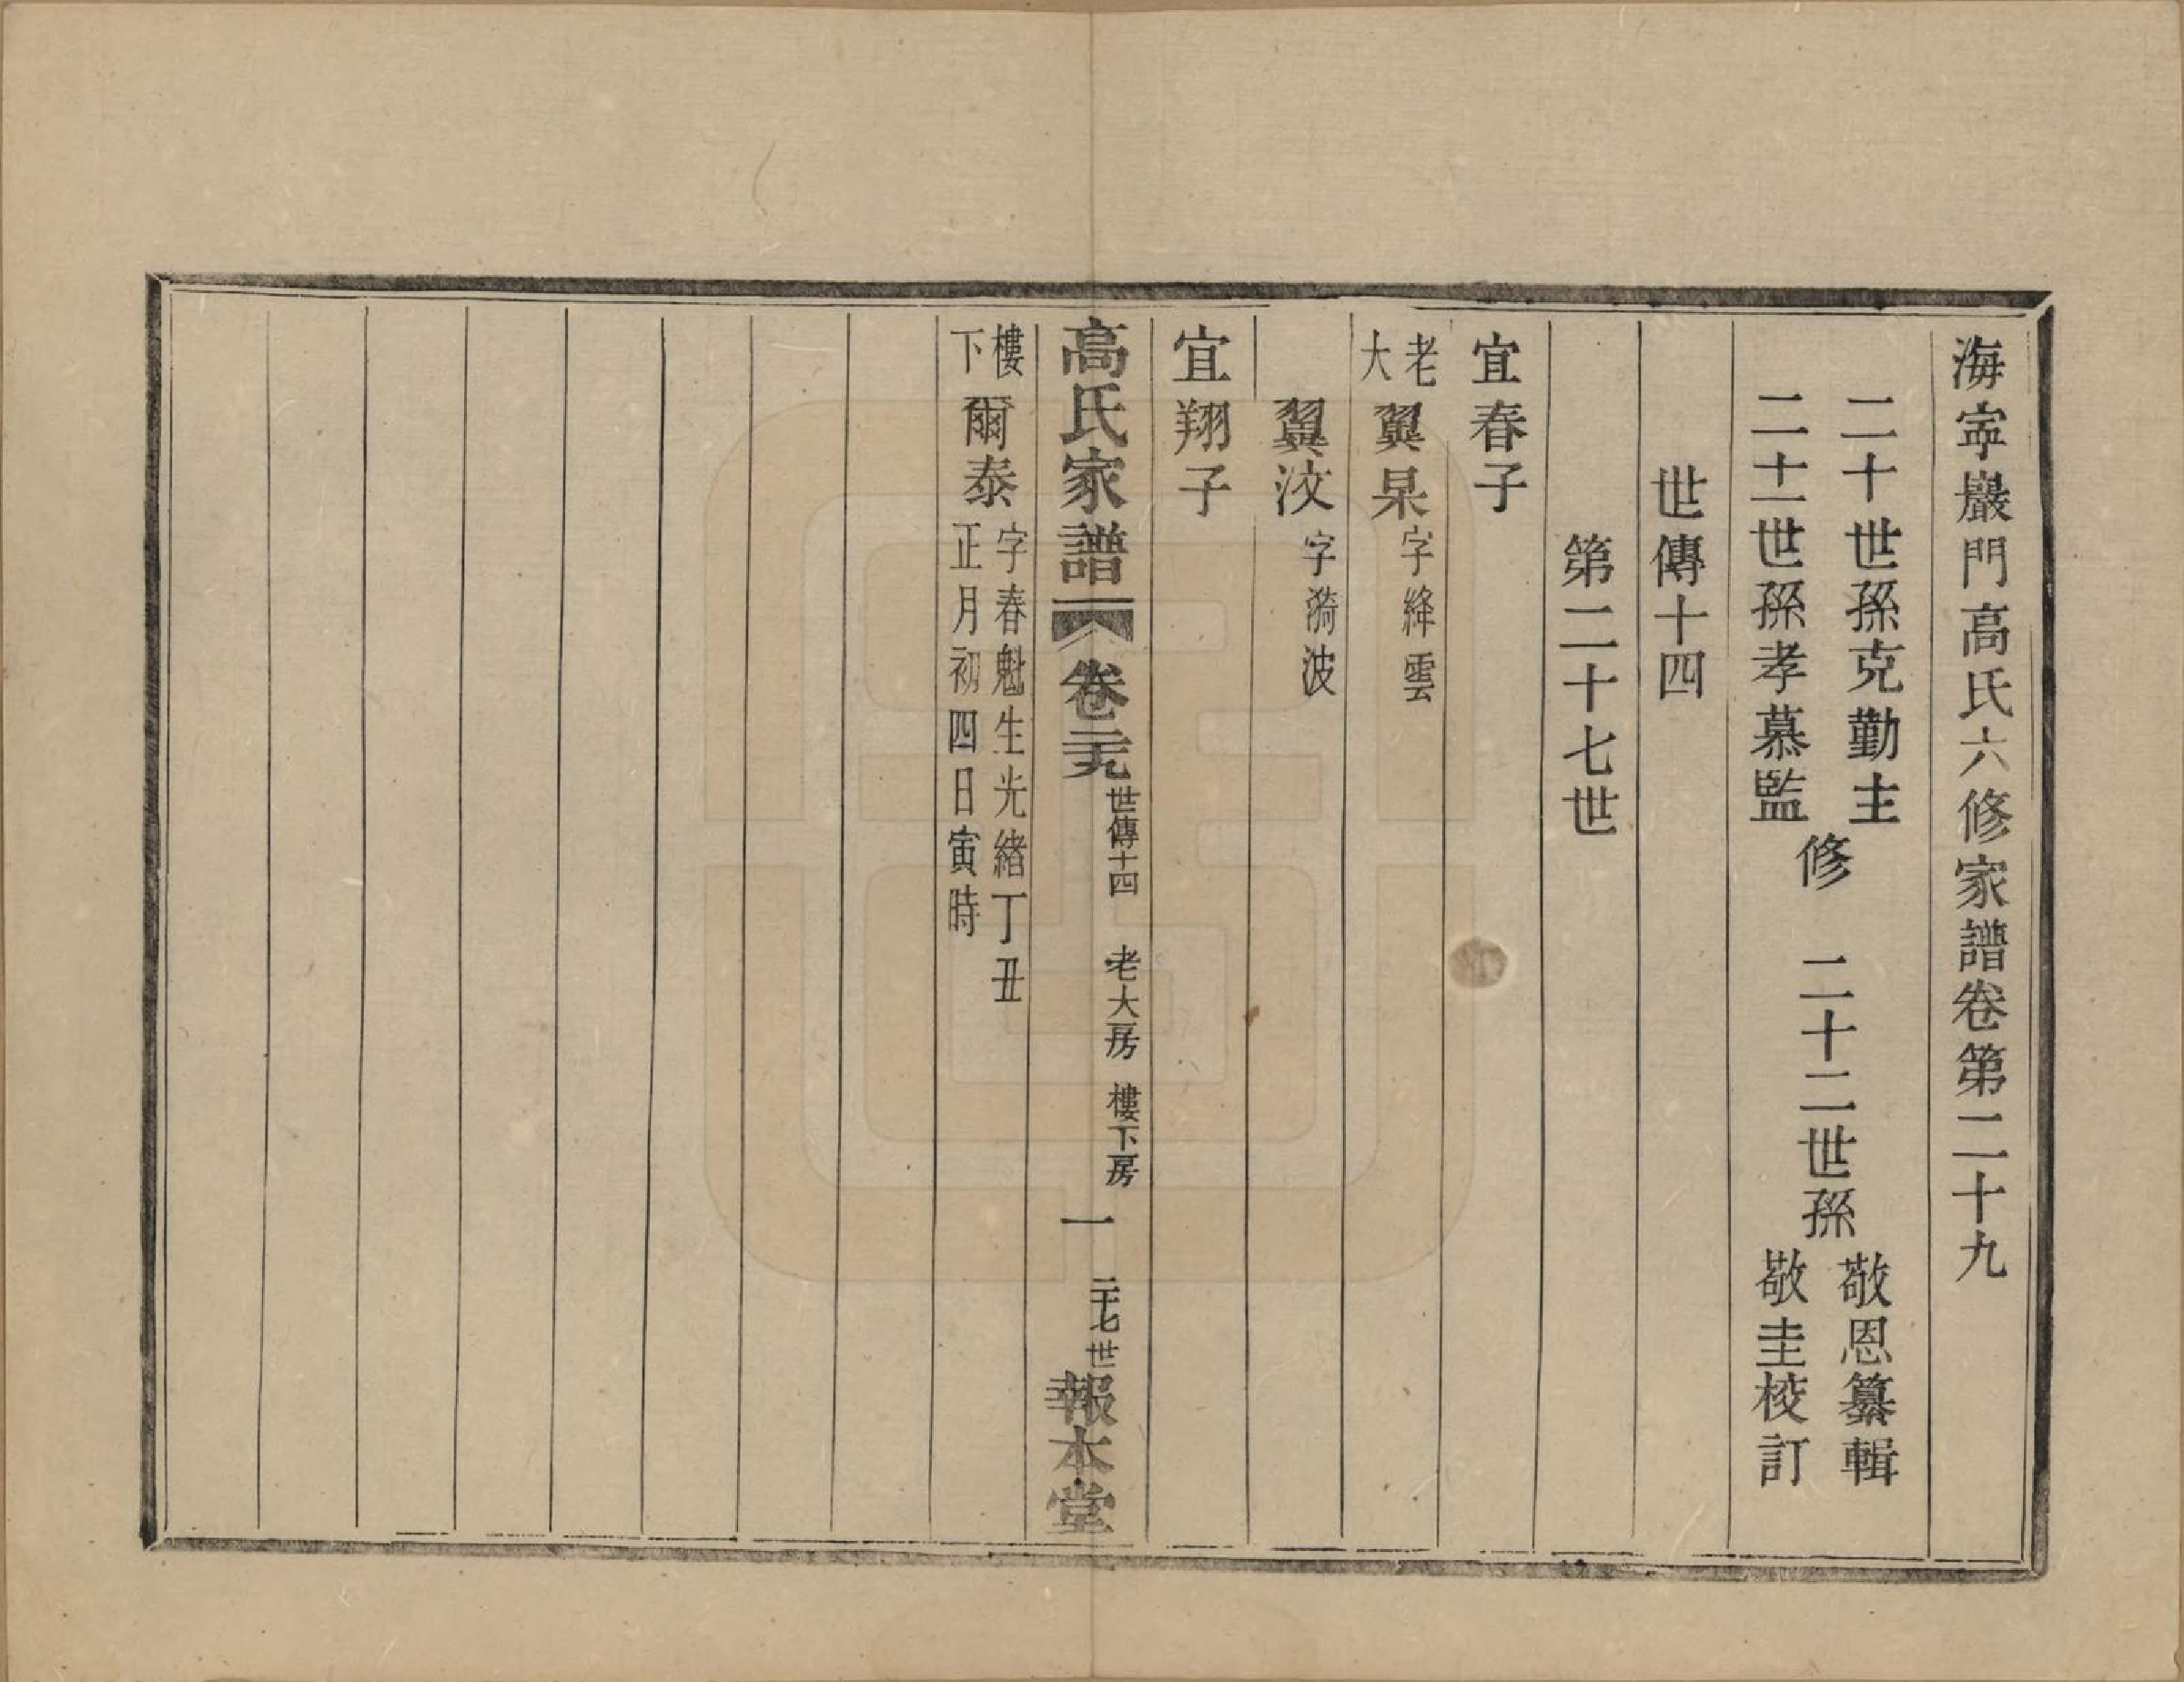 海寜巖門高氏六修家譜卷第二十九
二十世孫克勤主
二十一世孫孝慕監
修
二十二世孫
敬恩纂輯
敬圭校訂
世傳十四
第二十七世
宜春子
老大
翼杲字絳雲
翼汶字漪波
宜翔子
高氏家譜
卷二十九
世傳十四
老大房
樓下房
一
二十七世
報本堂
樓下
爾泰
字春魁生光緒丁丑
正月初四日寅時